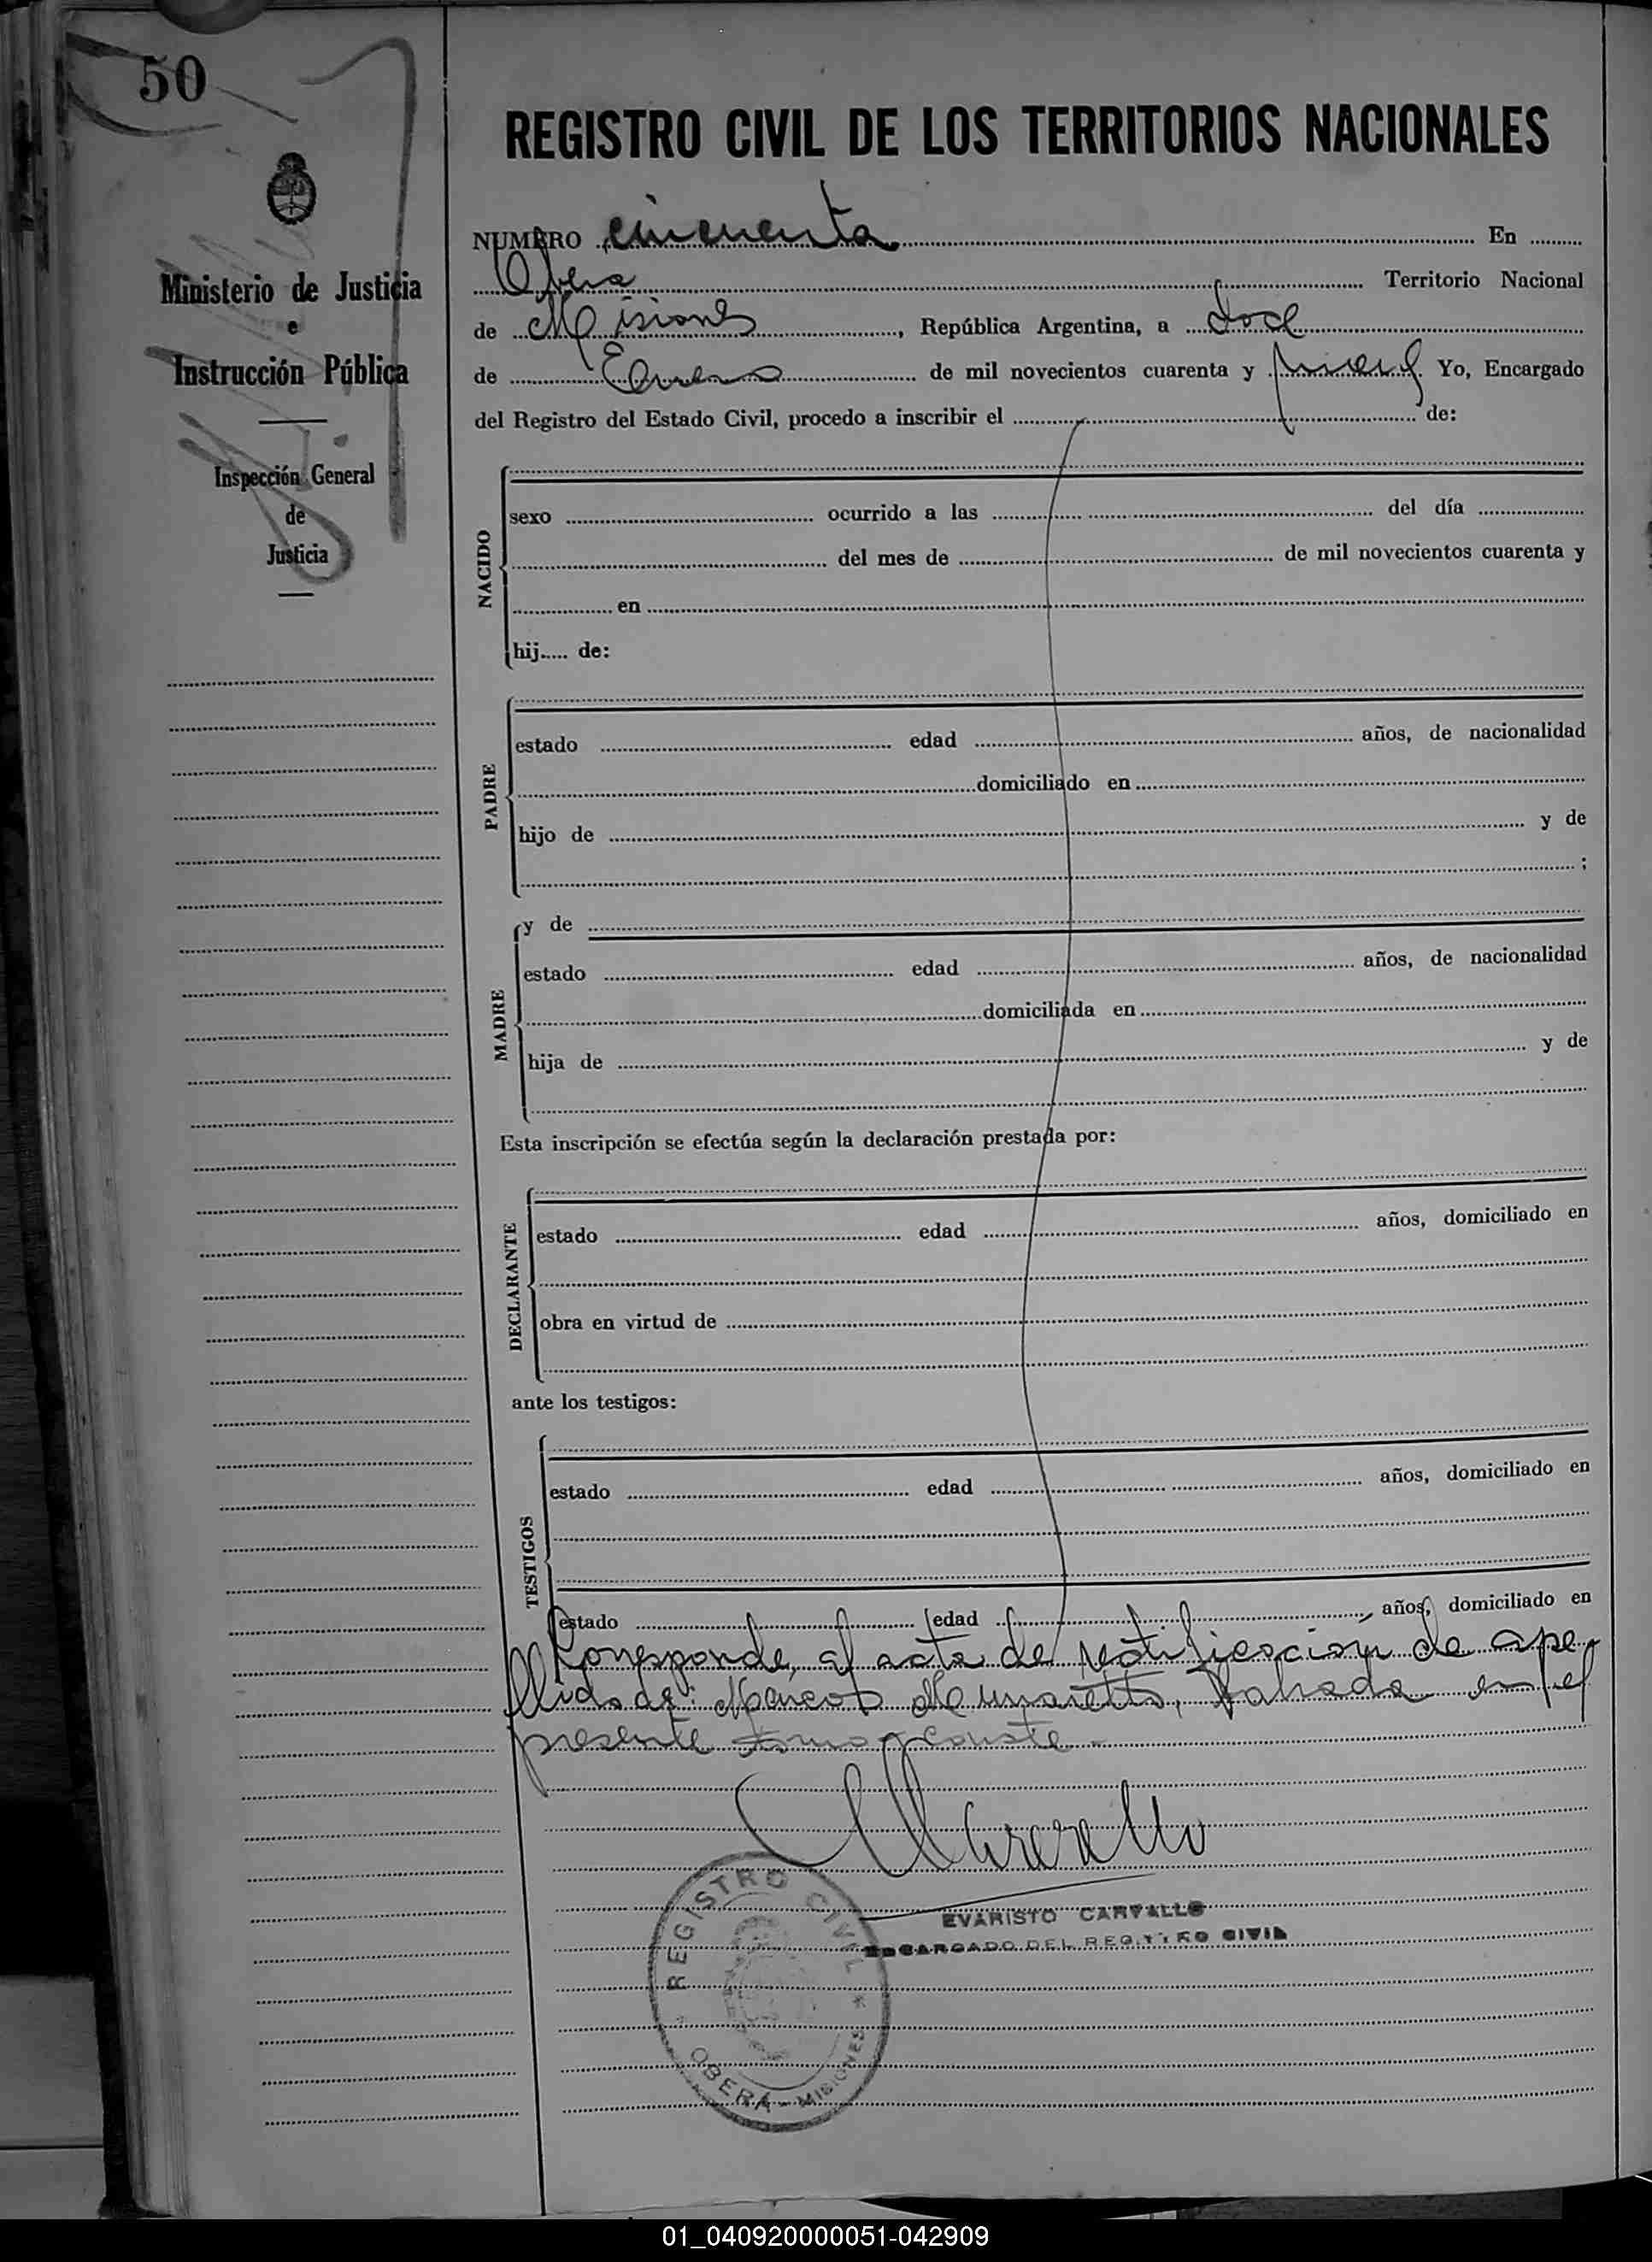 50
Ministerio de Justicia
e
Instrucción Pública
Inspección General
de
Justicia
REGISTRO CIVIL DE LOS TERRITORIOS NACIONALES
NUMERO cincuenta En
Obera Territorio Nacional
de Misiones, República Argentina, a doce
de Enero de mil novecientos cuarenta y nueve. Yo, Encargado
del Registro del Estado Civil, procedo a inscribir el de:
NACIDO
sexo ocurrido a las del día
del mes de de mil novecientos cuarenta y
en
hij..... de:
PADRE
estado edad años, de nacionalidad
domiciliado en
hijo de y de
;
MADRE
y de
estado edad años, de nacionalidad
domiciliada en
hija de y de
Esta inscripción se efectúa según la declaración prestada por:
DECLARANTE
estado edad años, domiciliado en
obra en virtud de
ante los testigos:
TESTIGOS
estado edad años, domiciliado en
estado edad años, domiciliado en
Corresponde, al acta de rectificación de ape-
llido de: Marcos labrada en el
presente tomo conste.-
EVARISTO CARVALLO
ENCARGADO DEL REGISTRO CIVIL
REGISTRO CIVIL
OBERA - MISIONES
01_040920000051-042909